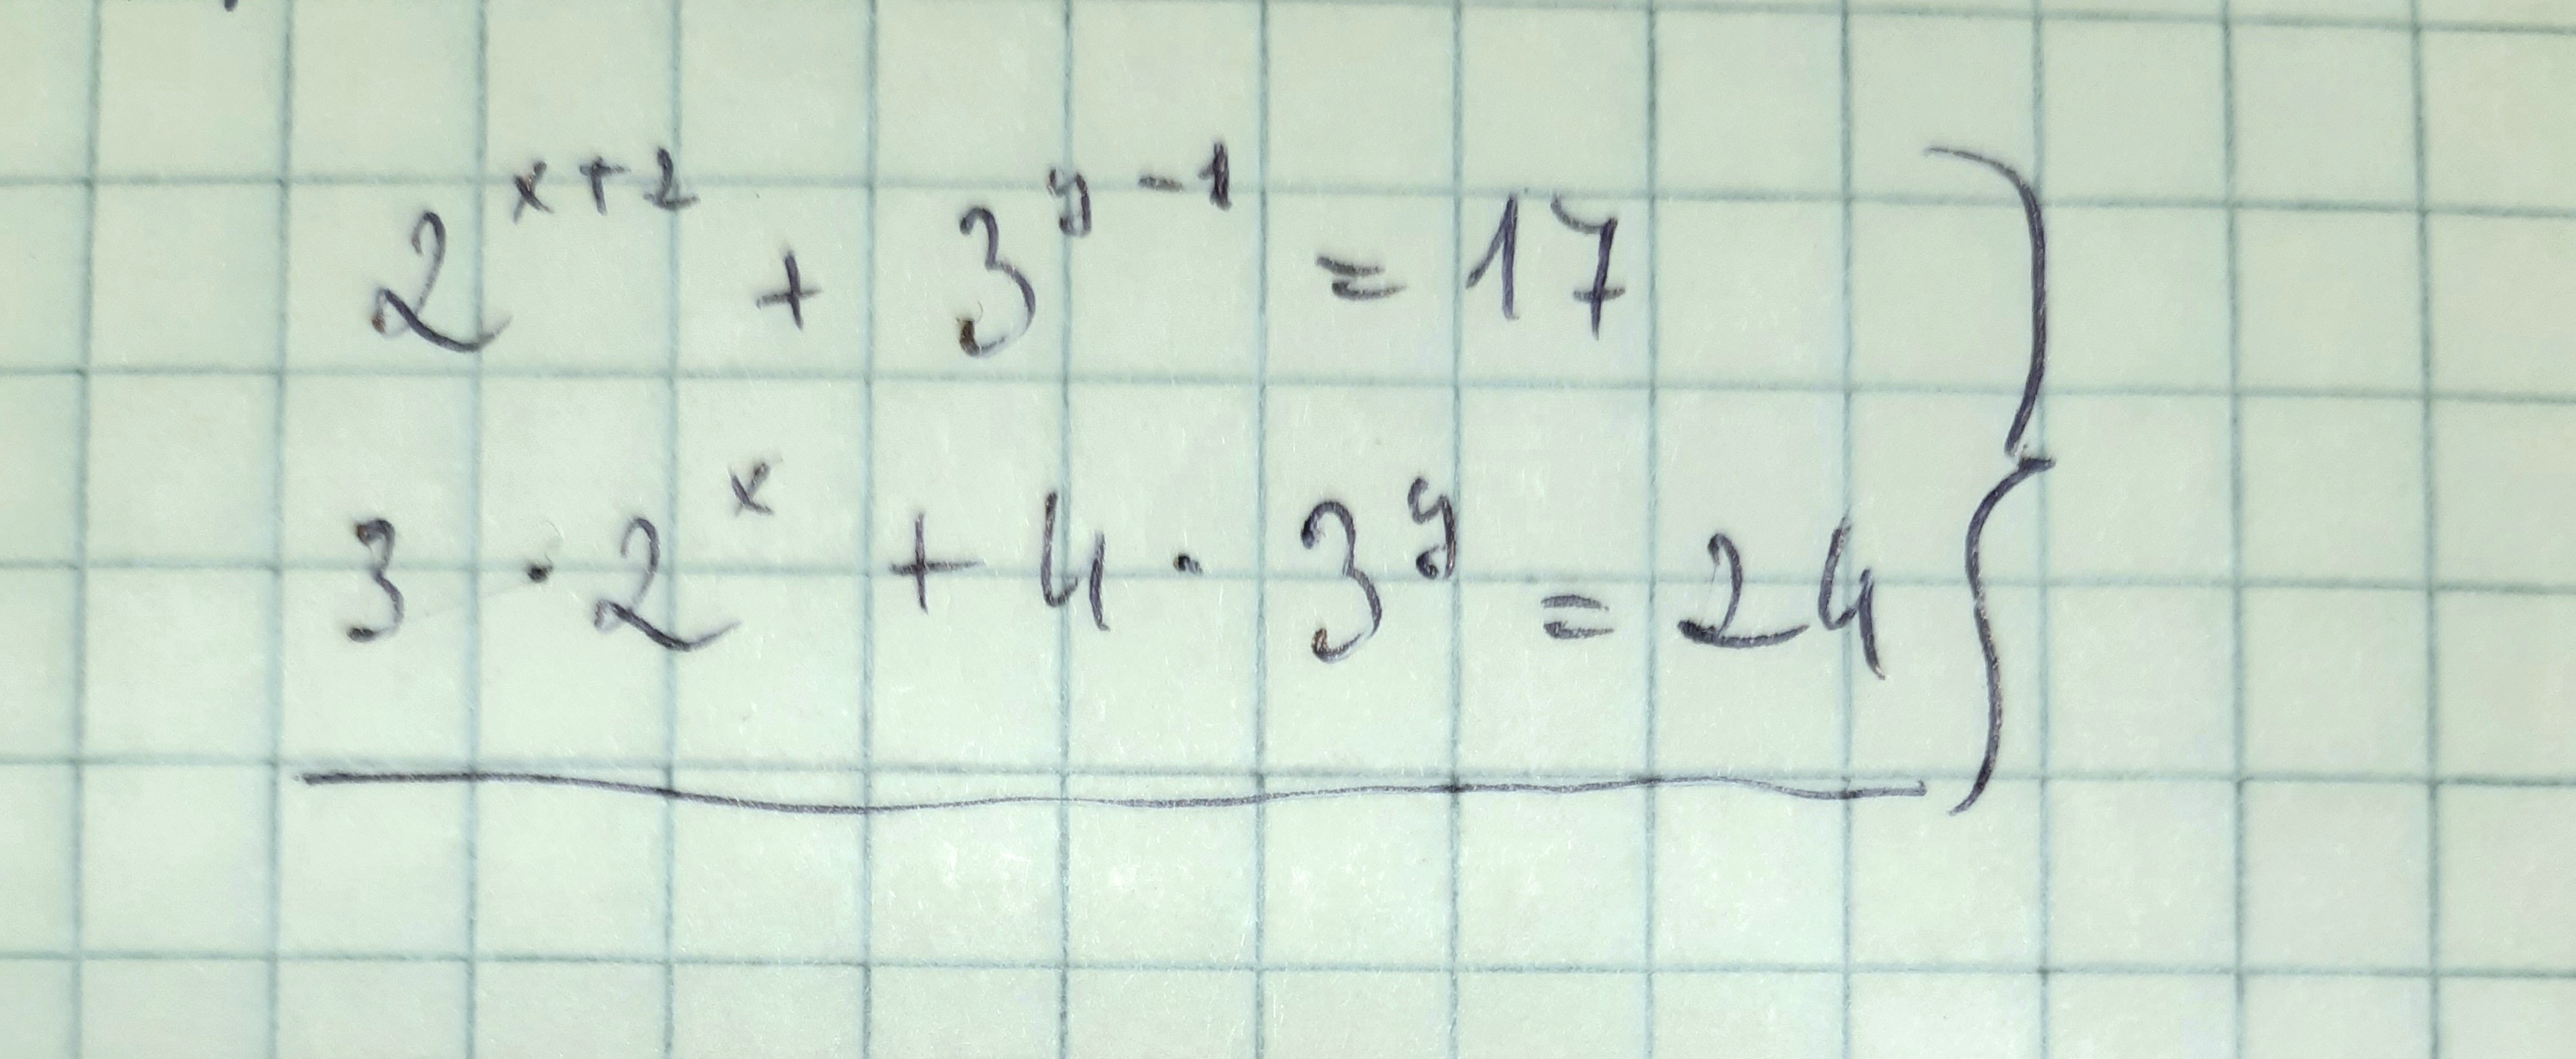 2^{x+2} + 3^{y-1} = 17
3 · 2^x + 4 · 3^y = 24